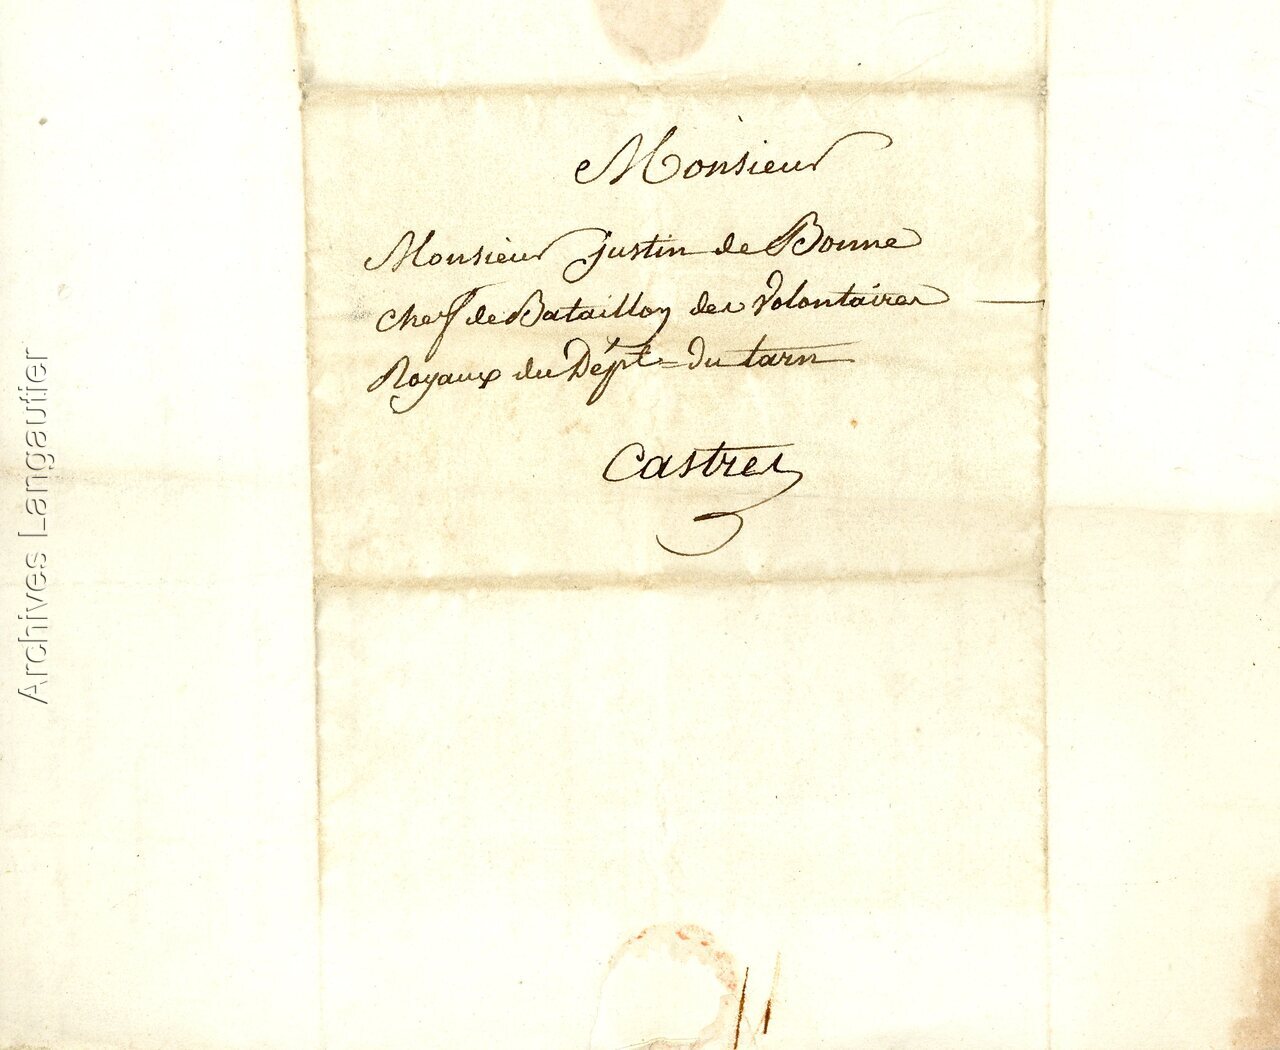 Monsieur
Monsieur justin de Bonne
chef de Bataillon des Volontaires
Royaux du Dépt= du tarn
Castres
Archives Langautier